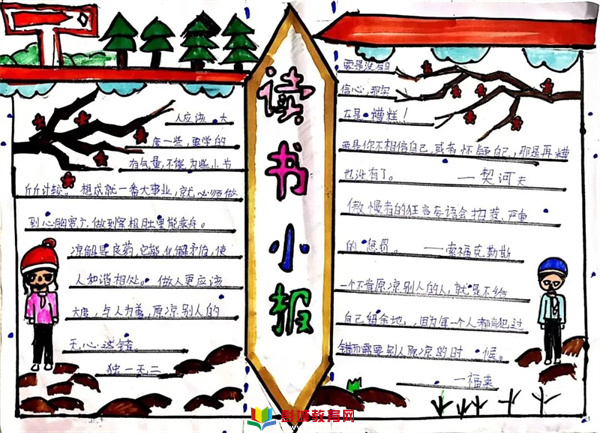 读书小报
人应该大
度一些,要学的
有气量,不能为些小节
斤斤计较。想成就一番大事业,就必须做
到心胸宽广,做到宰相肚里能乘舟。
谅解是良药,它能化解矛盾,使
人和谐相处。做人更应该
大度,与人为善,原凉别人的
无心过错。
独一无二
要是没有自
信心,那实
在是糟糕!
要是你不相信自己,或者怀疑自己,那是再糟
也没有了。——契诃夫
傲慢者的狂言妄语会招惹严重
的惩罚。——索福克勒斯
一个不肯原凉别人的人,就是不给
自己留余地,因为每一个人都有犯过
错而需要别人原凉的时候。
——福莱
教育网